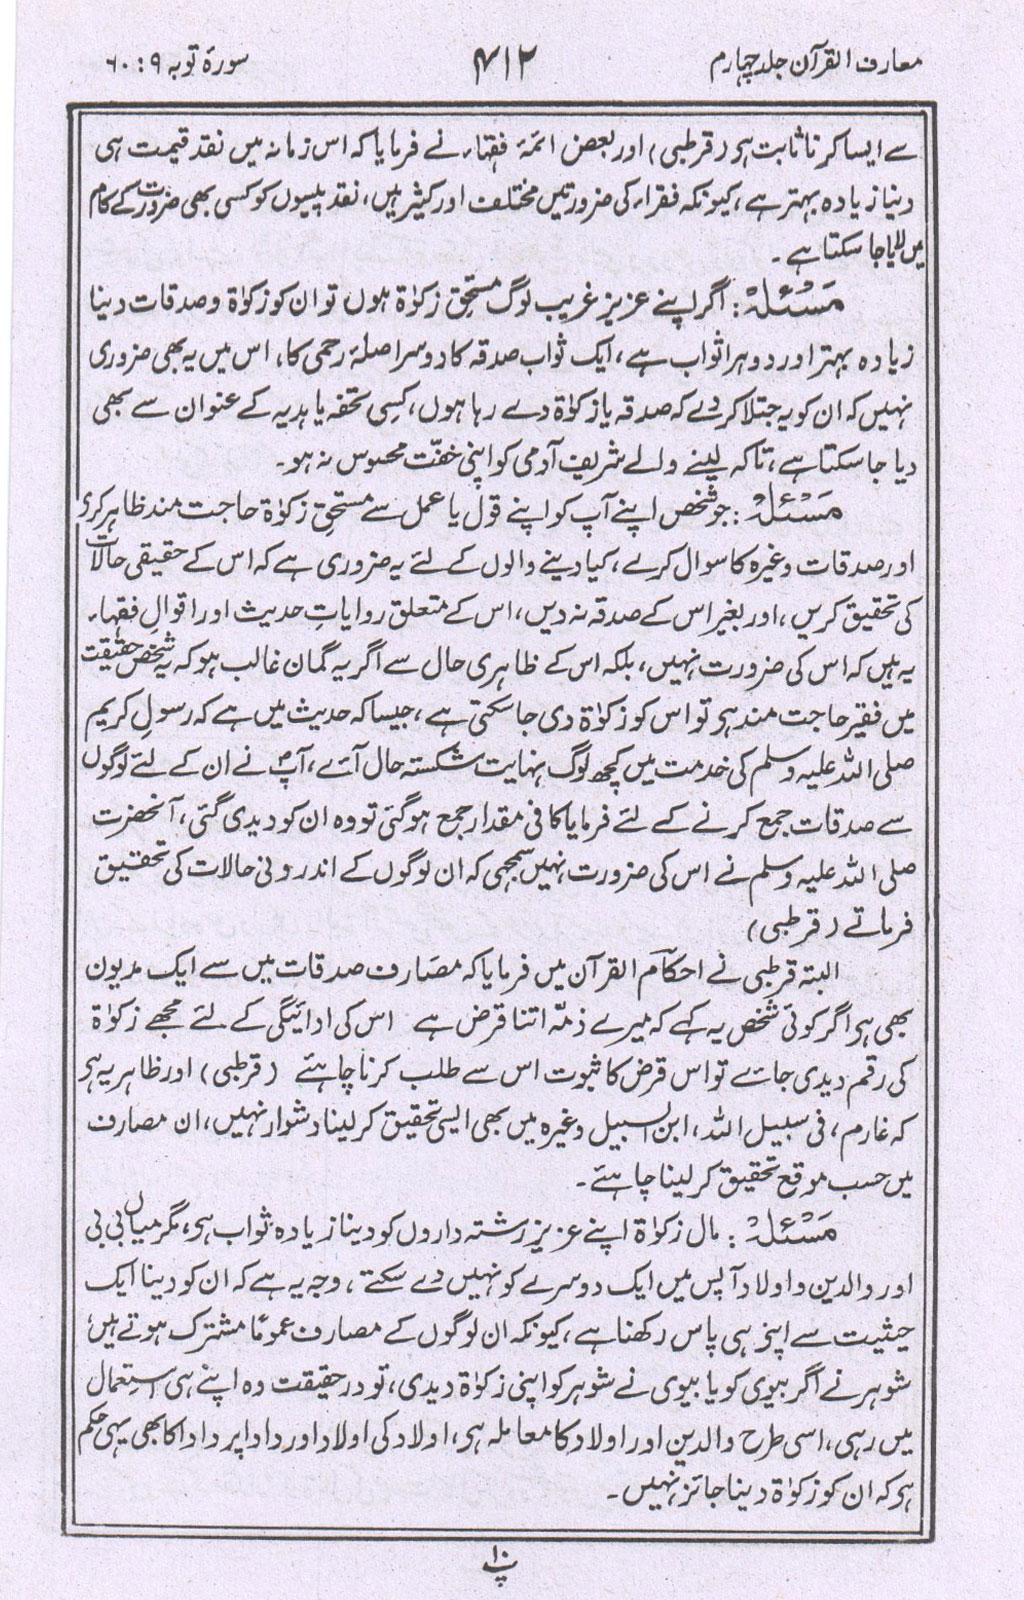 معارف القرآن جلد چہارم ۴۱۲ سورۂ توبہ ۹ : ۶۰
سے ایسا کرنا ثابت ہو (قرطبی) اور بعض ائمۂ فقہاء نے فرمایا کہ اس زمانہ میں نقد قیمت ہی
دینا زیادہ بہتر ہے، کیونکہ فقراء کی ضرورتیں مختلف اور کثیر ہیں، نقد پیسوں کو کسی بھی ضرورت کے کام
میں لایا جا سکتا ہے۔
مَسْئلہ: اگر اپنے عزیز غریب لوگ مستحقِ زکوٰۃ ہوں تو ان کو زکوٰۃ و صدقات دینا
زیادہ بہتر اور دوہرا ثواب ہے، ایک ثواب صدقہ کا دوسرا صلۂ رحمی کا، اس میں یہ بھی ضروری
نہیں کہ ان کو یہ جتلا کر دے کہ صدقہ یا زکوٰۃ دے رہا ہوں، کسی تحفہ یا ہدیہ کے عنوان سے بھی
دیا جا سکتا ہے، تاکہ لینے والے شریف آدمی کو اپنی خفّت محسوس نہ ہو۔
مَسْئلہ: جو شخص اپنے آپ کو اپنے قول یا عمل سے مستحقِ زکوٰۃ حاجت مند ظاہر کری
اور صدقات وغیرہ کا سوال کرے، کیا دینے والوں کے لئے یہ ضروری ہے کہ اس کے حقیقی حالات
کی تحقیق کریں، اور بغیر اس کے صدقہ نہ دیں، اس کے متعلق روایاتِ حدیث اور اقوالِ فقہاء
یہ ہیں کہ اس کی ضرورت نہیں، بلکہ اس کے ظاہری حال سے اگر یہ گمان غالب ہو کہ یہ شخص حقیقت
میں فقیر حاجت مند ہو تو اس کو زکوٰۃ دی جا سکتی ہے، جیسا کہ حدیث میں ہے کہ رسولِ کریم
صلی اللہ علیہ وسلم کی خدمت میں کچھ لوگ نہایت شکستہ حال آئے، آپؐ نے ان کے لئے لوگوں
سے صدقات جمع کرنے کے لئے فرمایا کافی مقدار جمع ہو گئی تو وہ ان کو دیدی گئی، آنحضرت
صلی اللہ علیہ وسلم نے اس کی ضرورت نہیں سمجھی کہ ان لوگوں کے اندرونی حالات کی تحقیق
فرماتے (قرطبی)
البتہ قرطبی نے احکام القرآن میں فرمایا کہ مصارف صدقات میں سے ایک مدیون
بھی ہو اگر کوئی شخص یہ کہے کہ میرے ذمّہ اتنا قرض ہے اس کی ادائیگی کے لئے مجھے زکوٰۃ
کی رقم دیدی جائے تو اس قرض کا ثبوت اس سے طلب کرنا چاہئے (قرطبی) اور ظاہر یہ ہو
کہ غارم، فی سبیل اللہ، ابن السبیل وغیرہ میں بھی ایسی تحقیق کر لینا دشوار نہیں، ان مصارف
میں حسب موقع تحقیق کر لینا چاہئے۔
مَسْئلہ: مال زکوٰۃ اپنے عزیز رشتہ داروں کو دینا زیادہ ثواب ہو، مگر میاں بی بی
اور والدین و اولاد آپس میں ایک دوسرے کو نہیں دے سکتے، وجہ یہ ہے کہ ان کو دینا ایک
حیثیت سے اپنے ہی پاس رکھنا ہے، کیونکہ ان لوگوں کے مصارف عموماً مشترک ہوتے ہیں،
شوہر نے اگر بیوی کو یا بیوی نے شوہر کو اپنی زکوٰۃ دیدی، تو در حقیقت وہ اپنے ہی استعمال
میں رہی، اسی طرح والدین اور اولاد کا معاملہ ہو، اولاد کی اولاد اور دادا پر دادا کا بھی یہی حکم
ہو کہ ان کو زکوٰۃ دینا جائز نہیں۔